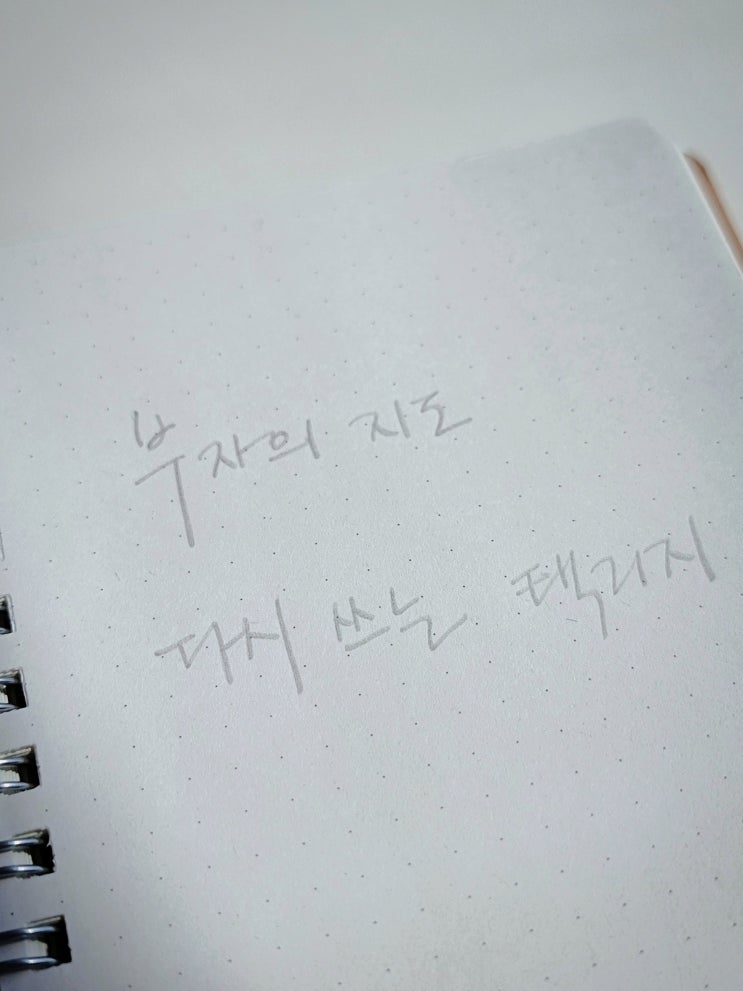 부자의 지도
다시 쓰는 택리지